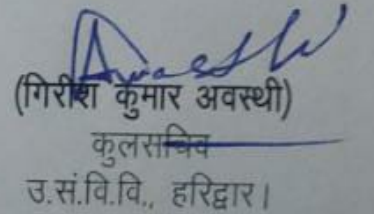 (गिरीश कुमार अवस्थी)
कुलसचिव
उ.सं.वि.वि., हरिद्वार।